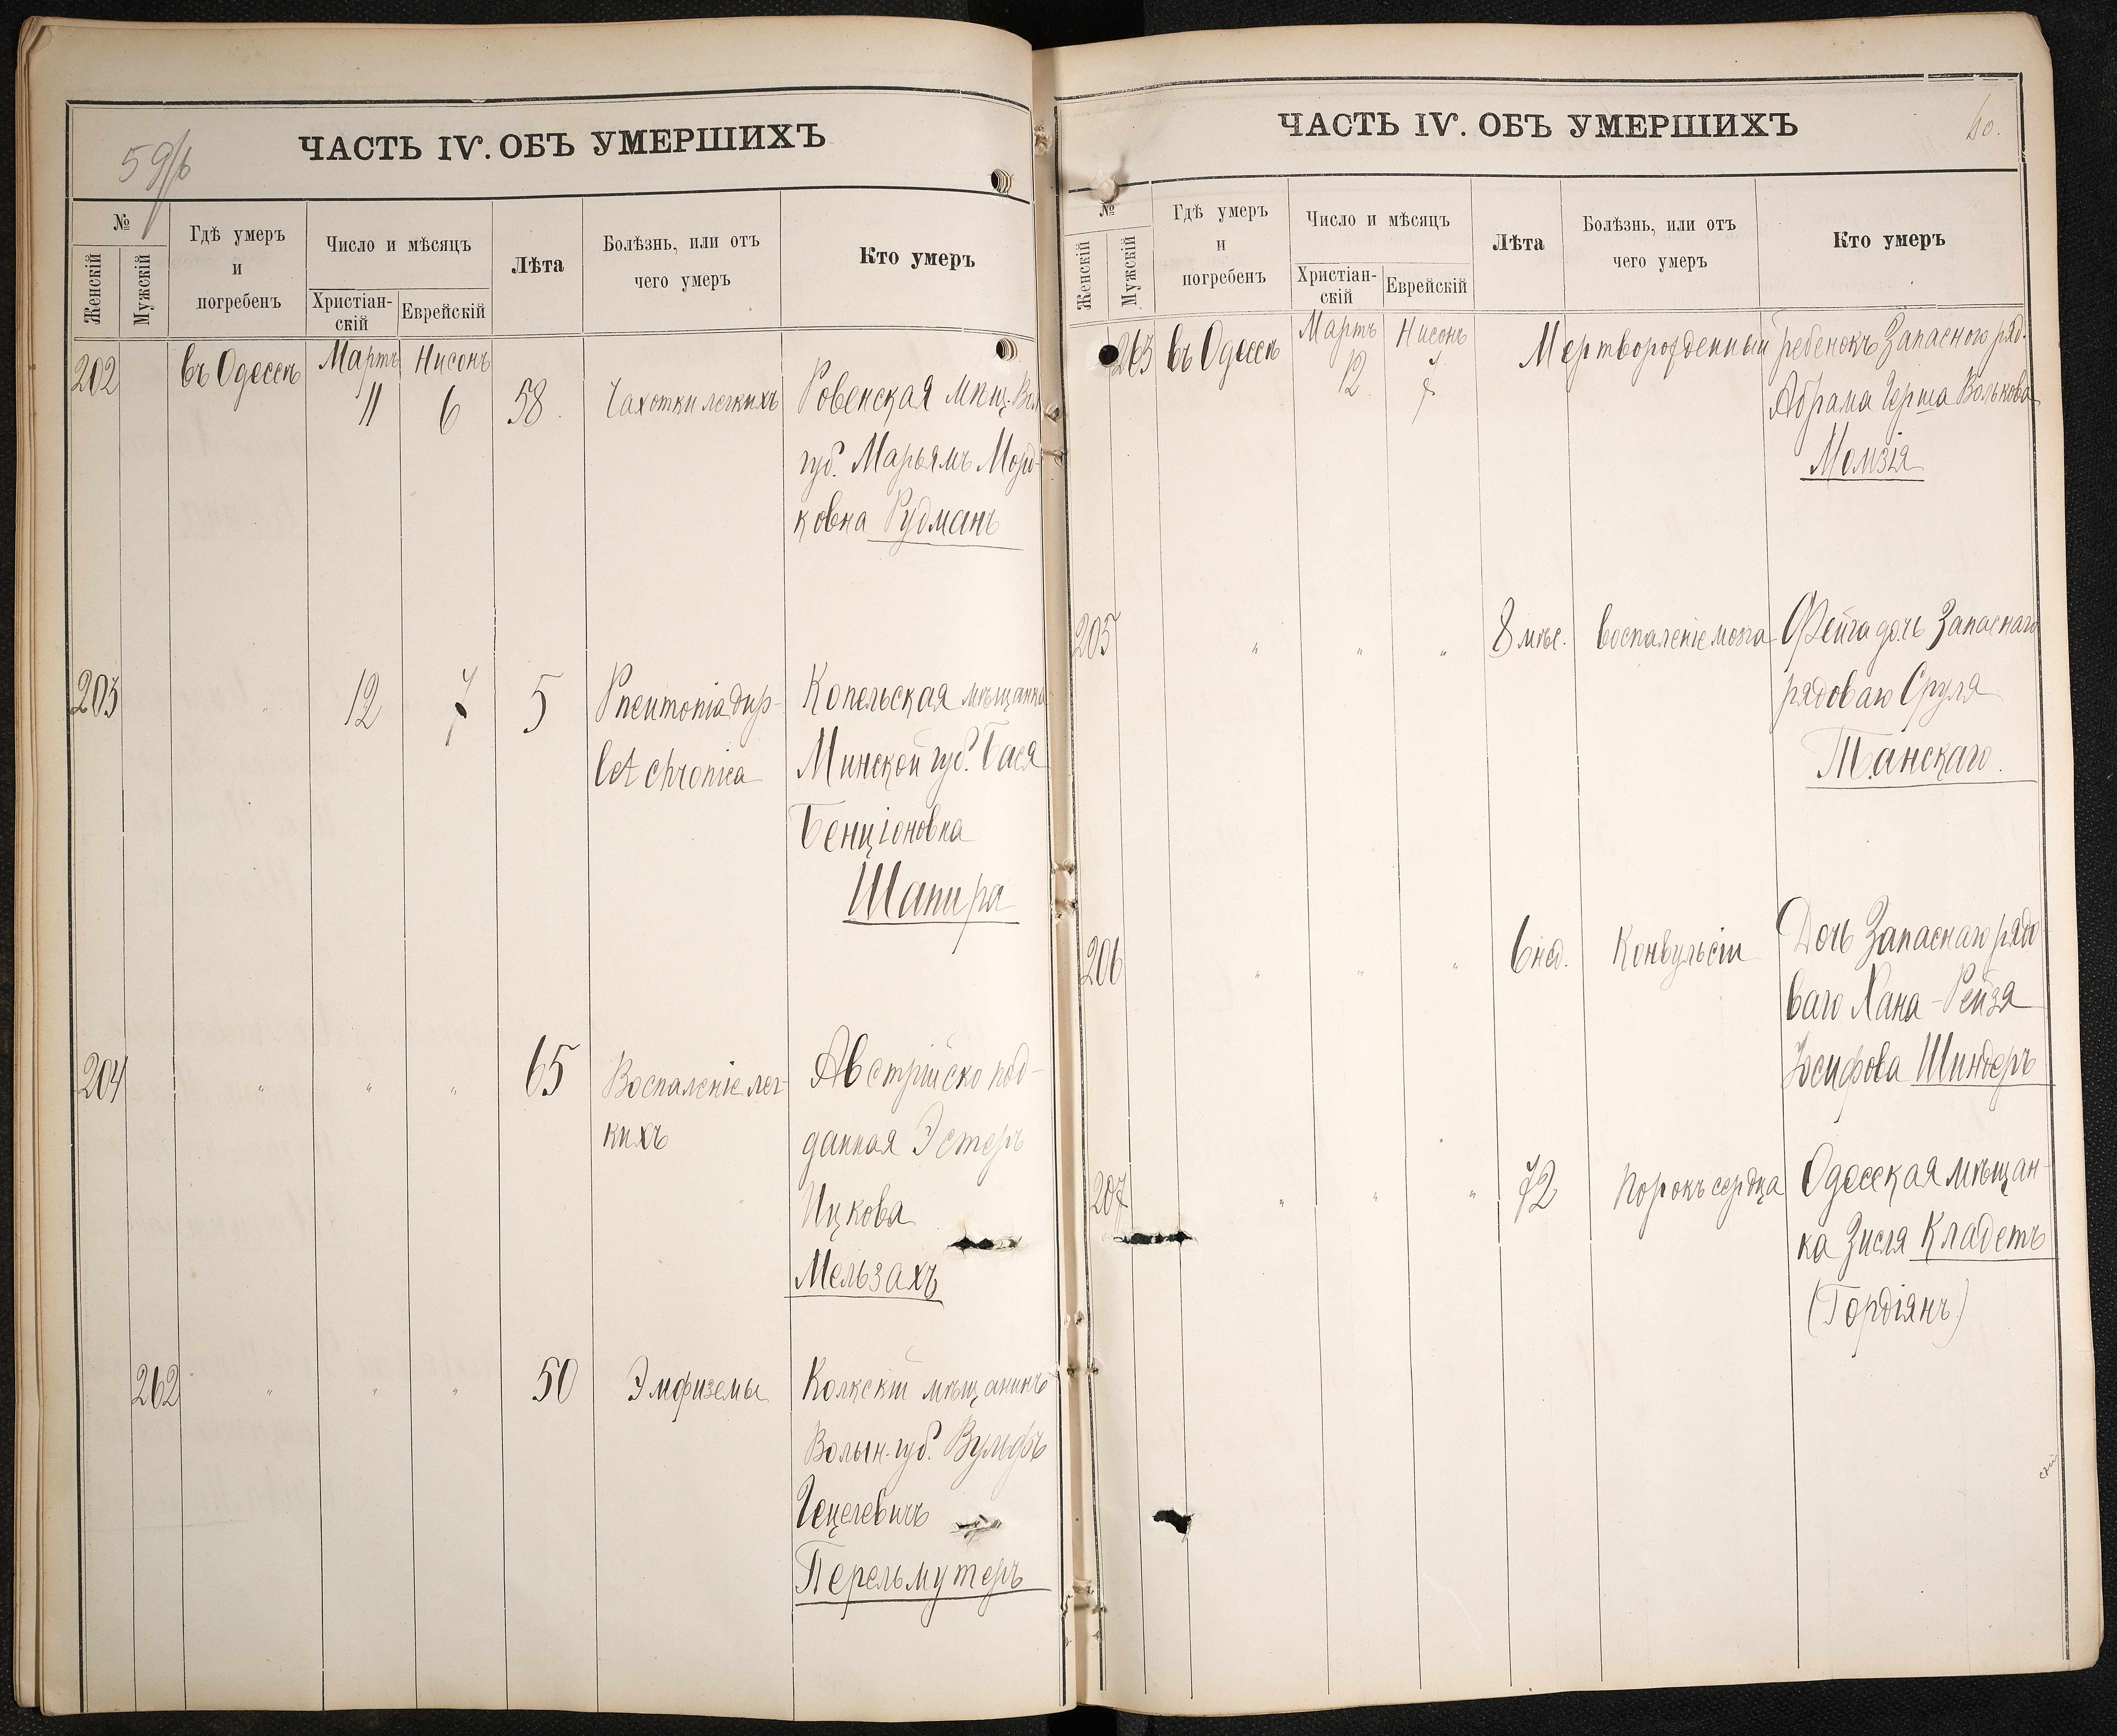 59/b
ЧАСТЬ IV. ОБЪ УМЕРШИХЪ
№
Женскій
Мужскій
Гдѣ умеръ
и
погребенъ
Число и мѣсяцъ
Христіан-
скій
Еврейскій
Лѣта
Болѣзнь, или отъ
чего умеръ
Кто умеръ
202 въ Одессѣ Мартъ Нисонъ
11 6 58. Чахотки легкихъ Ровенская мѣщ. Вол
губ. Марьямъ Морд-
ковна Рудманъ
203 " 12 7 5 Pneumonia dup- Копельская мѣщанка
let chronica Минской губ. Бася
Бенціоновна
Шапира
204 " " " 65 Воспаленіе лег- Австрійско под-
кихъ данная Эстеръ
Ицкова
Мельзахъ
262 " " " 50 Эмфиземы Колкскій мѣщанинъ
Волын. губ. Вульфъ
Гецелевичъ
Перельмутеръ
60.
ЧАСТЬ IV. ОБЪ УМЕРШИХЪ
№
Женскій
Мужскій
Гдѣ умеръ
и
погребенъ
Число и мѣсяцъ
Христіан-
скій
Еврейскій
Лѣта
Болѣзнь, или отъ
чего умеръ
Кто умеръ
263 въ Одессѣ Мартъ Нисонъ Мертворожденный ребенокъ Запасного ряд.
12 7 Абрама Герша Волькова
Момзія
205 " " " 8 мѣс. воспаленіе мозга Фейга дочь Запаснаго
рядоваго Сруля
Танскаго.
206 " " " 6 нед. Конвульсіи Дочь Запаснаго рядо
ваго Хана-Рейзя
Іосифова Шиндеръ
207 " " " 72 Порокъ сердца Одесская мѣщан-
ка Зисля Кладетъ
(Гордіянъ)